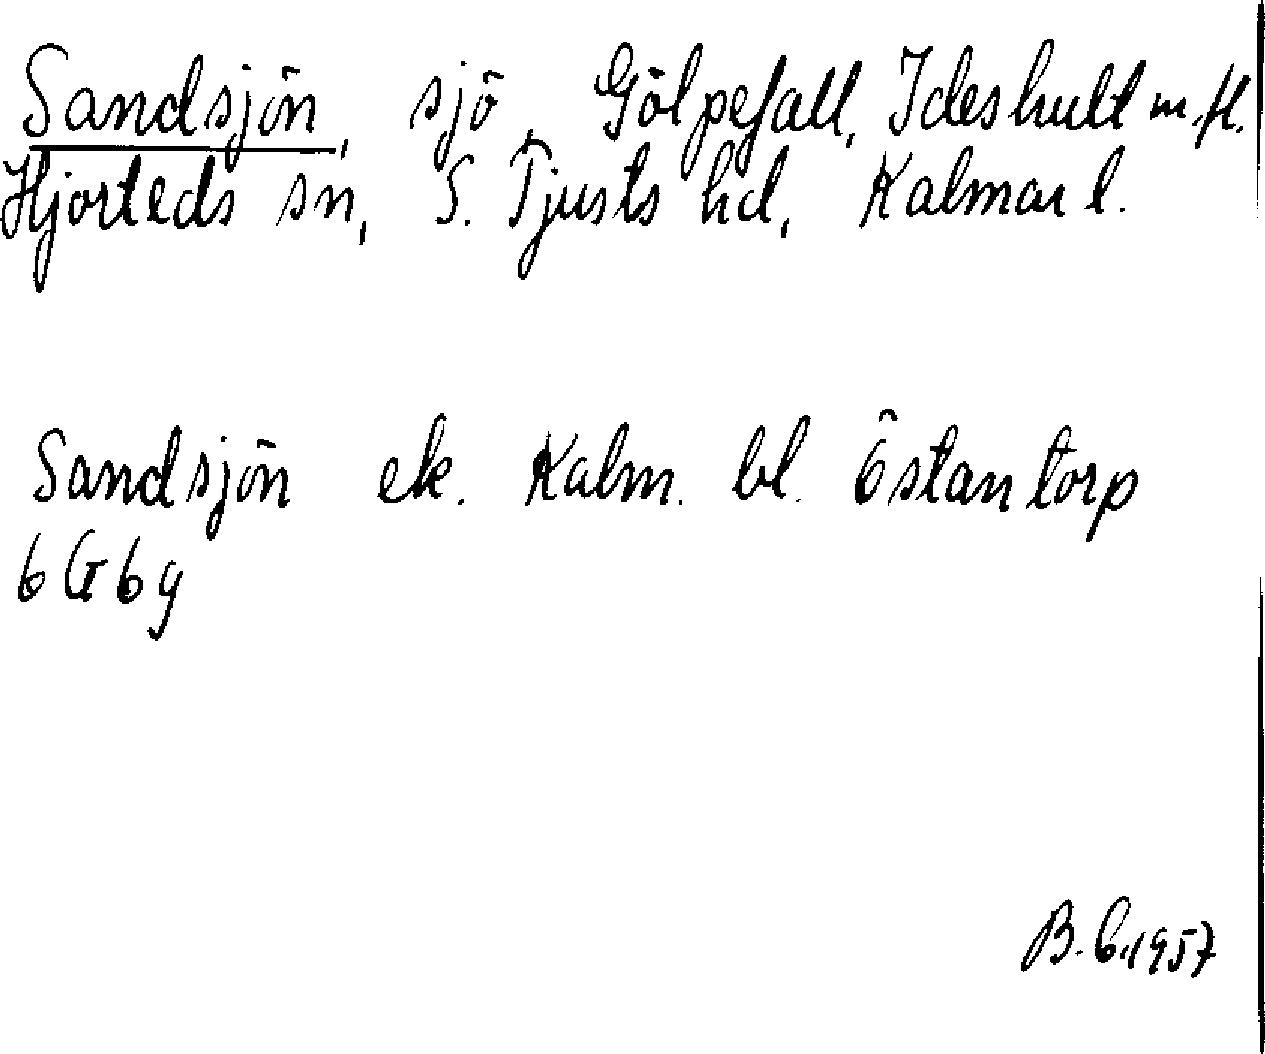 Sandsjön, sjö, Gölpefall, Ideshult m.fl.
Hjorteds sn, S. Tjusts hd, Kalmar l.
Sandsjön ek. Kalm. bl. Östantorp
6 G 6 g
B. C. 1957